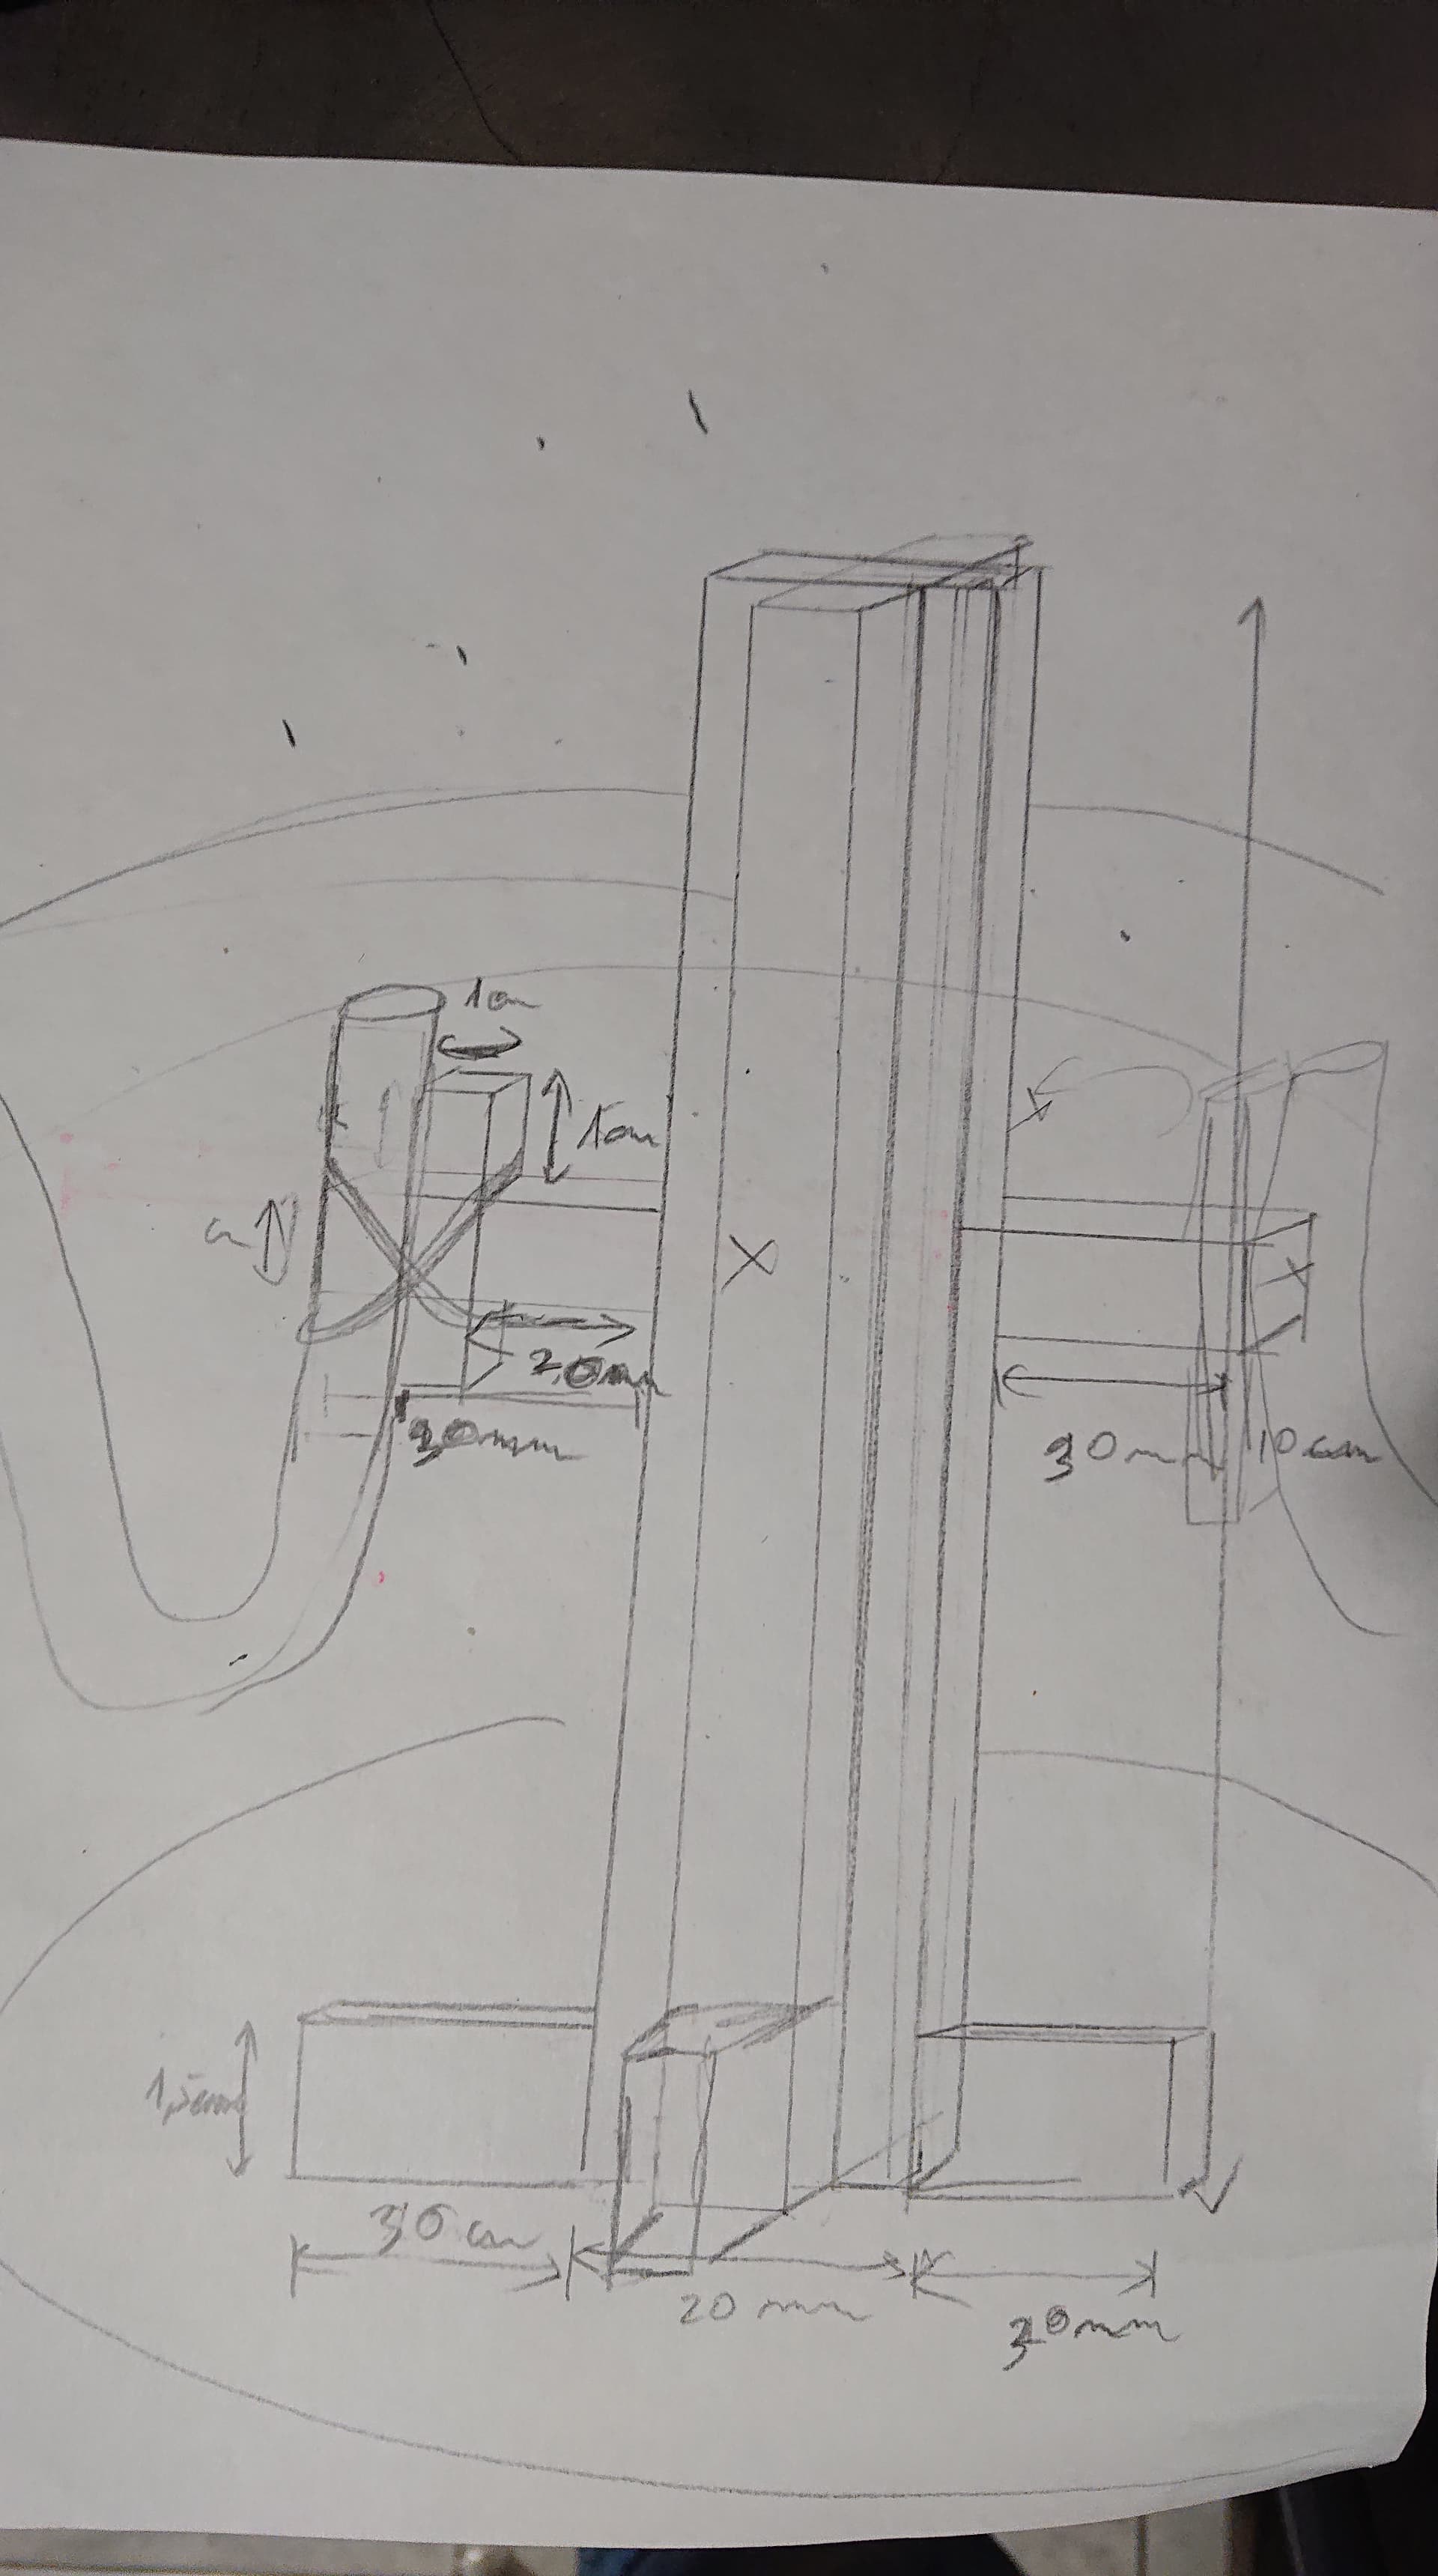 1cm
1cm
20mm
30mm
30mm
10cm
1,5cm
30 cm
20 mm
30mm